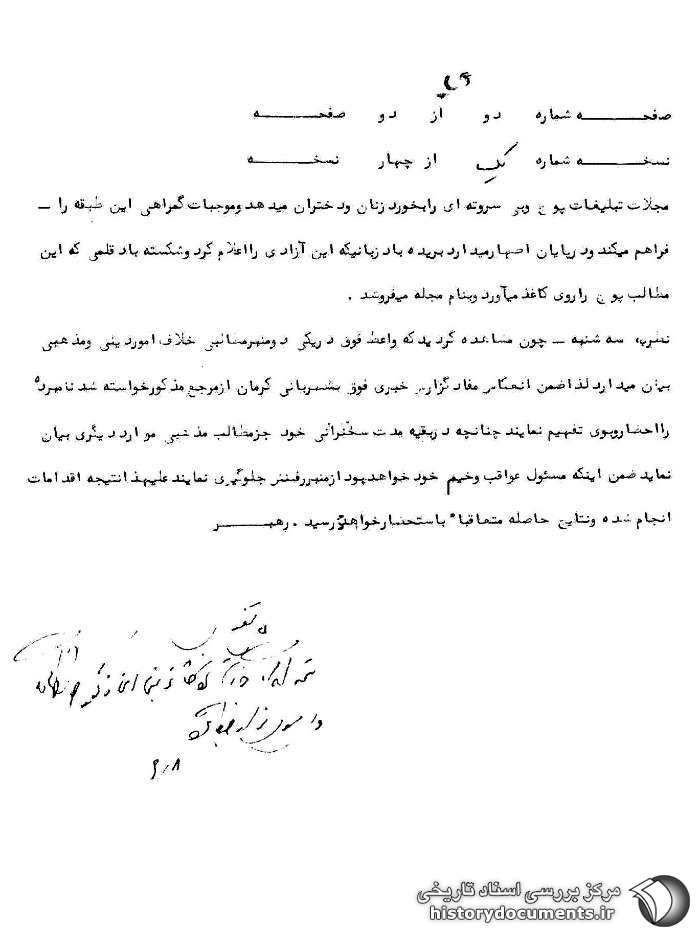 صفحــــــه شماره دو از دو صفحــــــه
نسخــــــه شماره یک از چهار نسخــــــه
مجلات تبلیغات پوچ وبی سروته ای رابخورد زنان ودختران میدهد وموجبات گمراهی این طبقه را ــ
فراهم میکند ودرپایان اظهارمیدارد بریده باد زبانیکه این آزادی رااعلام کرد وشکسته باد قلمی که این
مطالب پوچ راروی کاغذ میآورد وبنام مجله میفروشد .
نظریه سه شنبه ــ چون مشاهده گردیدکه واعظ فوق دریکی دومنبرمطالبی خلاف اموردینی ومذهبی
بیان میدارد لذا ضمن انعکاس مفاد گزارش خبری فوق بشهربانی کرمان ازمرجع مذکورخواسته شد نامبرده
رااحضاروبوی تفهیم نمایند چنانچه دربقیه مدت سخنرانی خود جزمطالب مذهبی موارد دیگری بیان
نماید ضمن اینکه مسئول عواقب وخیم خود خواهدبود ازمنبررفتنش جلوگیری نمایند علیهذا نتیجه اقدامات
انجام شده ونتایج حاصله متعاقبا" باستحضارخواهد رسید . رهبــــــر
۹/۸
مرکز بررسی اسناد تاریخی
historydocuments.ir